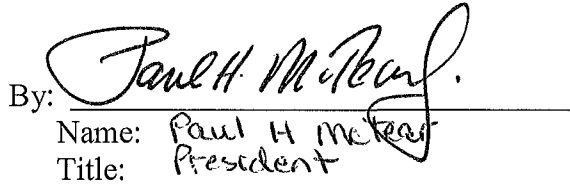 By: Paul H. McTear
Name: Paul H McTear
Title: President